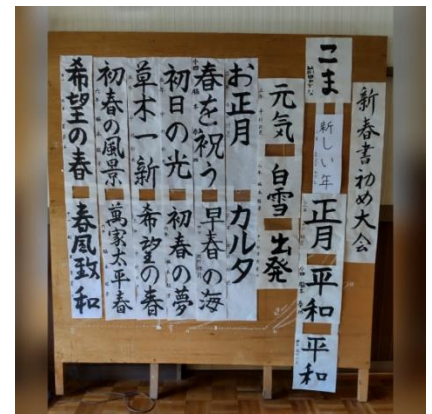 新春書初め大会
こま
新しい年
正月
平和
平和
元気
白雪
出発
お正月
カルタ
春を祝う
早春の海
初日の光
初春の夢
草木一新
希望の春
初春の風景
萬家太平春
希望の春
春風致和